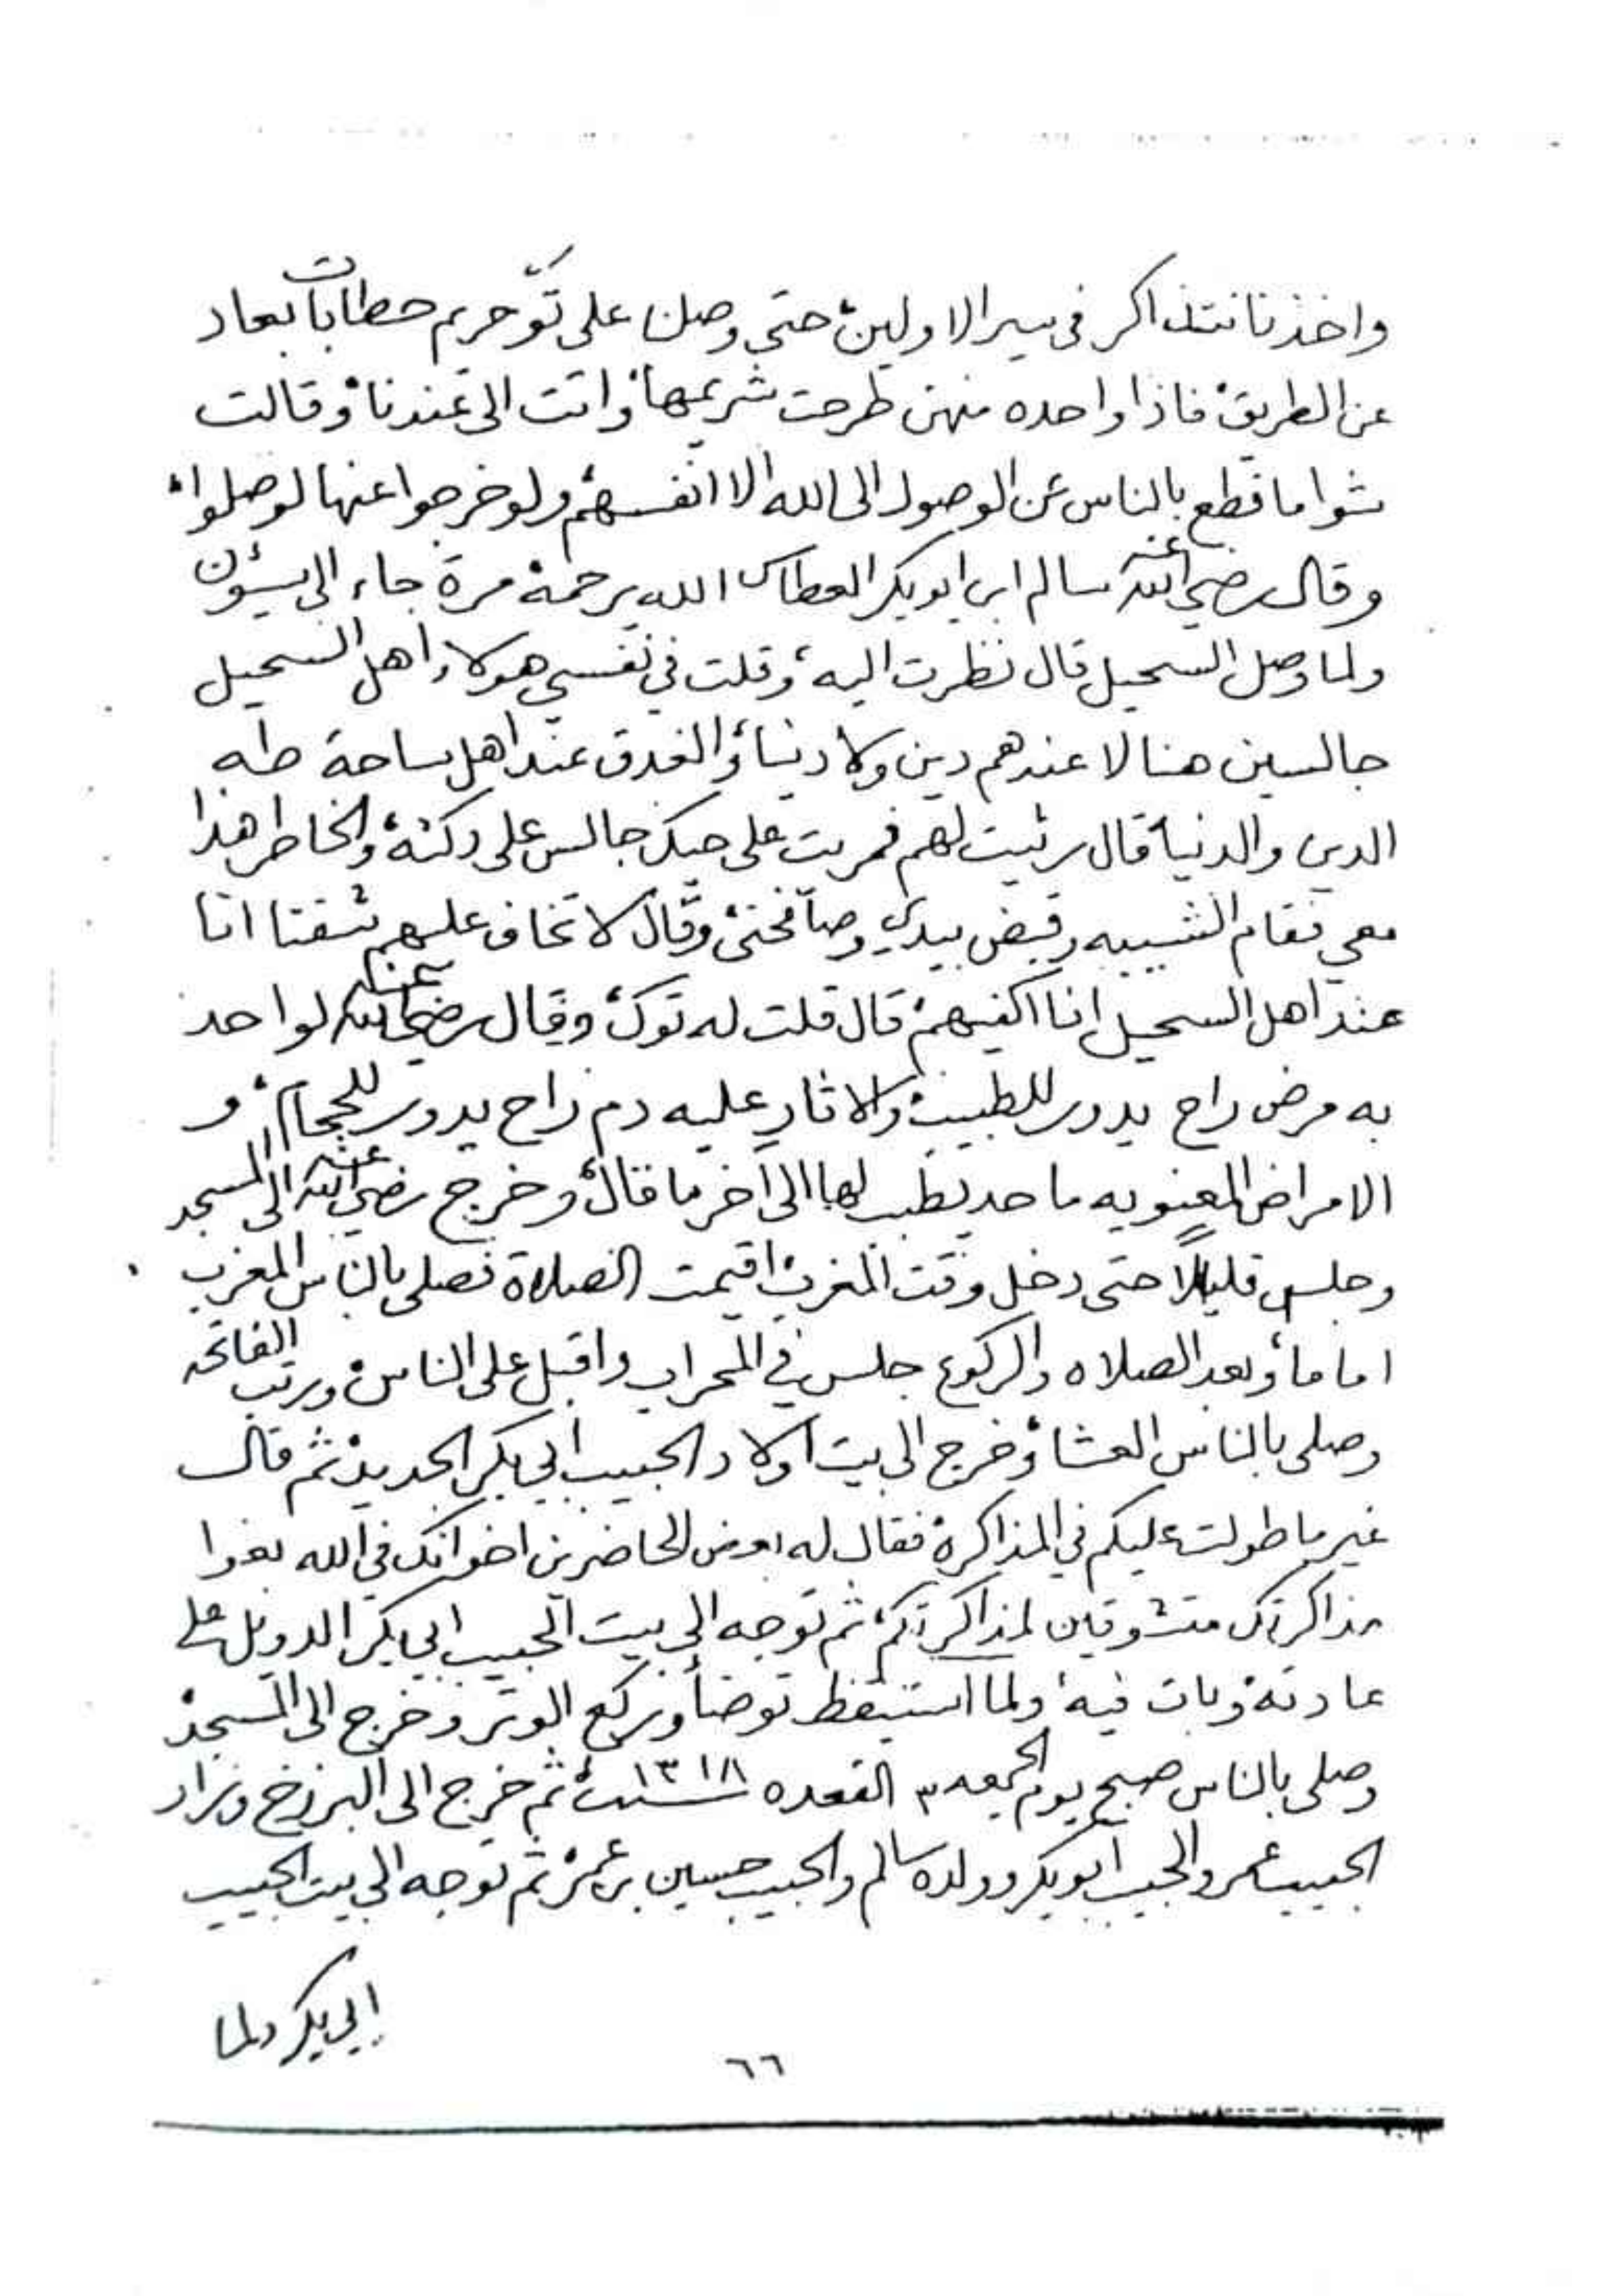 واخذنا نتذاكر في سير الاولين، حتى وصلنا على تَوّ حريم حطابات بعاد
عن الطريق، فاذا واحده منهن طرحت شريمها، واتت الى عندنا، وقالت
شوا ما قطع بالناس عن الوصول الى الله الا انفسهم، ولو خرجوا عنها لوصلوا،
وقال رضي الله عنه سالم ابن ابو بكر العطاس الله يرحمه، مرة جاء الى سيؤن
ولما وصل السحيل قال نظرت اليه، وقلت في نفسي هولاء اهل السحيل
جالسين هنا لا عندهم دين ولا دنيا، والغدق عند اهل ساحة طه
الدين والدنيا، قال رثيت لهم فمريت على جالس على دكته، والخاطر هذا
معي فقام الشيبه وقبض بيدي وصافحني، وقال لا تخاف عليهم شفنا انا
عند اهل السحيل انا اكفيهم، قال قلت له توك، وقال رضي الله عنه لو احد
به مرض راح يدور للطبيب، والا ثار عليه دم راح يدور للحجام، و
الامراض المعنويه ما حد يطبب لها الى آخر ما قال، وخرج رضي الله عنه الى المسجد
وجلس قليلا حتى دخل وقت المغرب، اقيمت الصلاة فصلى بالناس المغرب
اماما، وبعد الصلاه والركوع جلس في المحراب واقبل على الناس، ورتب الفاتحه
وصلى بالناس العشا، وخرج الى بيت اولاد الحبيب ابي بكر الجديد، ثم قال
غير ما طولت عليكم في المذاكرة، فقال له بعض الحاضرين اخوانك في الله بغوا
مذاكرتك متشوقين لمذاكرتكم، ثم توجه الى بيت الحبيب ابي بكر الدويل على
عادته، وبات فيه، ولما استيقظ توضأ وركع الوتر وخرج الى المسجد،
وصلى بالناس صبح يوم الجمعه ٣ القعده سنة ١٣١٨، ثم خرج الى البرزخ وزار
الحبيب عمر والحبيب ابو بكر وولده سالم والحبيب حسين بن عمر، ثم توجه الى بيت الحبيب
ابي بكر ولما
٦٦